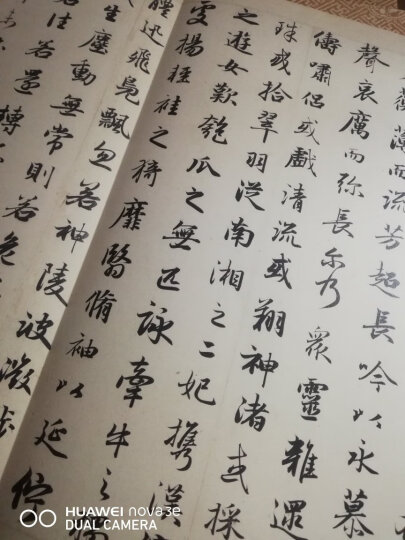 薄而流芳超長吟以永慕
聲哀厲而弥長尓乃衆靈雜遝
儔嘯侣或戲清流或翔神渚或採
珠或拾翠羽從南湘之二妃攜漢
之遊女歎匏瓜之無匹詠牽牛之
處揚輕袿之猗靡翳脩袖以延佇
體迅飛鳧飄忽若神陵波微步
生塵動無常則若危
若往若還轉
HUAWEI nova 3e
DUAL CAMERA